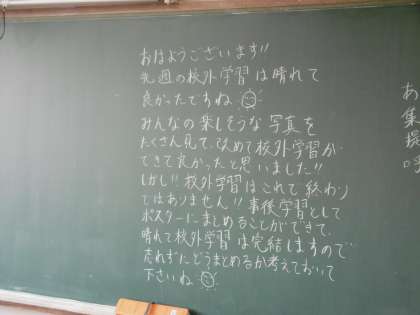 おはようございます!!
先週の校外学習は晴れて
良かったですね
みんなの楽しそうな写真を
たくさん見て、改めて校外学習が
できて良かったと思いました!!
しかし!! 校外学習はこれで終わり
ではありません!! 事後学習として
ポスターにまとめることができて、
晴れて校外学習は完結しますので
忘れずにどうまとめるか考えておいて
下さいね
あ
集